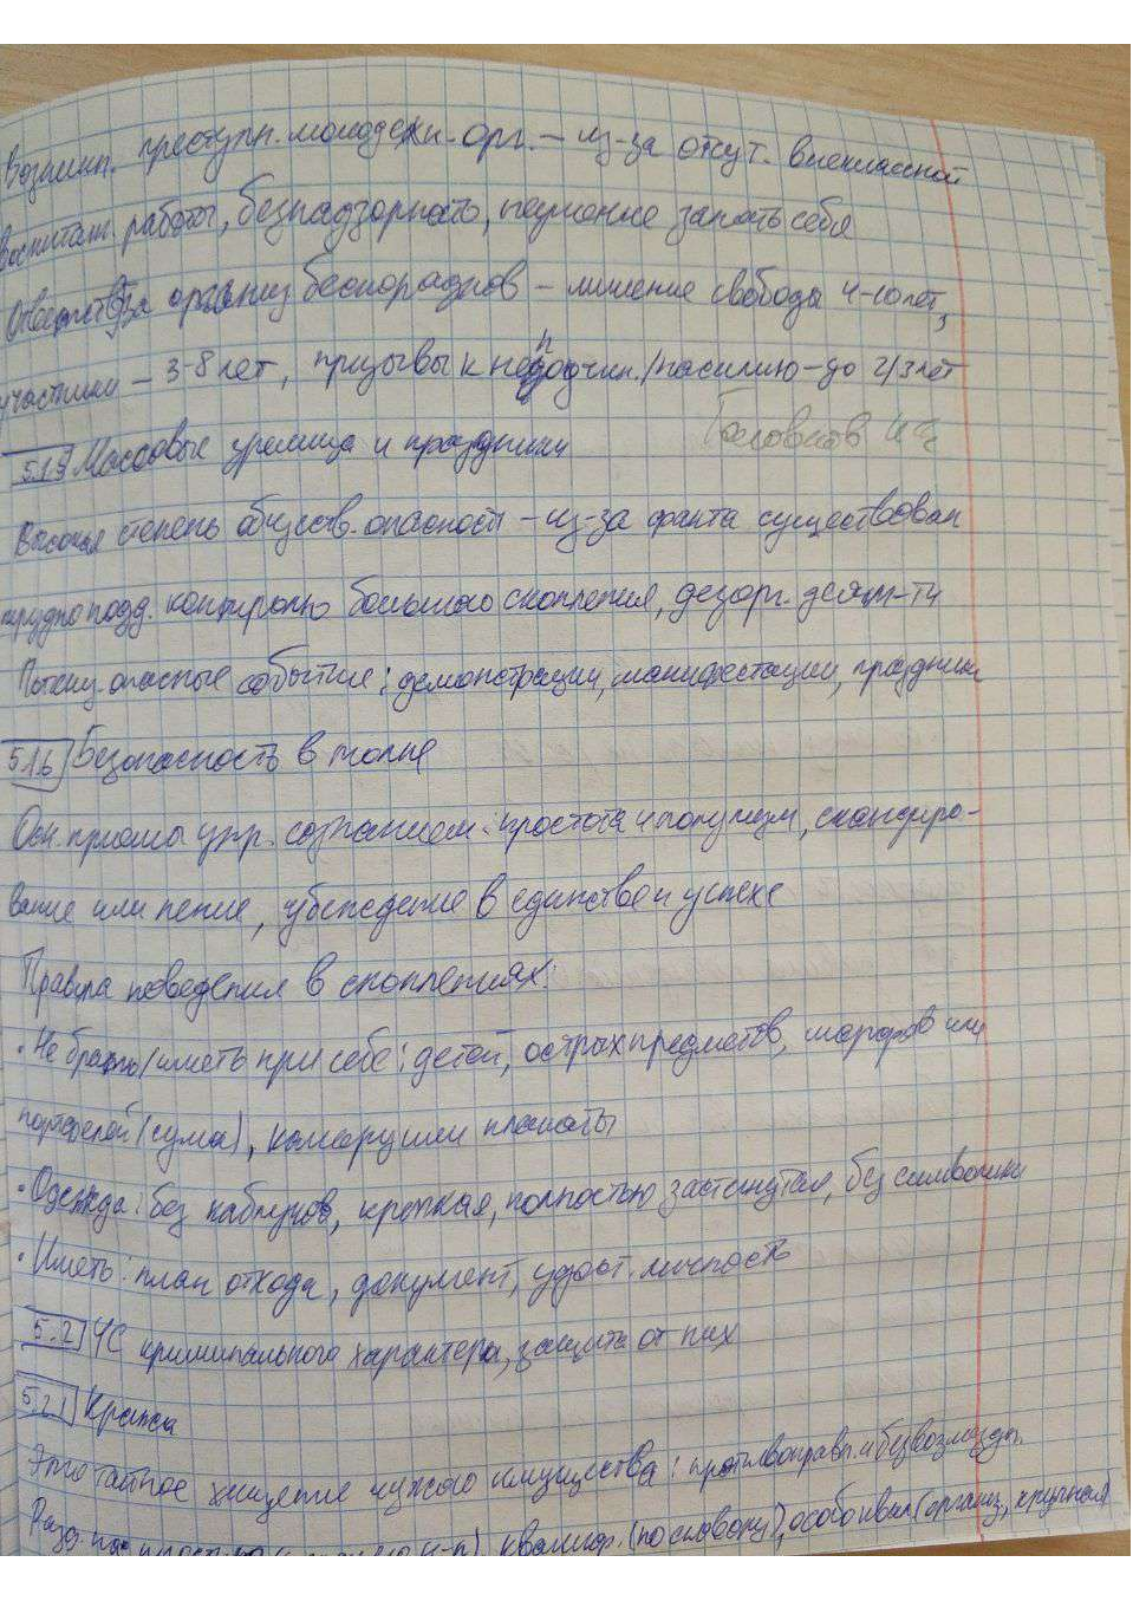 Возникн. преступн. молодежн. орг. – из-за отсут. внеклассной
воспитат. работы, безнадзорность, неумение занять себя
Ответств. за организ беспорядков – лишение свободы 4-10 лет,
участники – 3-8 лет, призывы к неподчин./насилию – до 2/3 лет
5.1.5 Массовые зрелища и праздники
Высокая степень обществ. опасности – из-за факта существован
трудно подд. контролю большого скопления, дезорг. деят-ти
Потенц. опасные события: демонстрации, манифестации, праздники
5.1.6 Безопасность в толпе
Осн. приемы упр. сознанием: простота и популизм, скандиро-
вание или пение, убеждение в единстве и успехе
Правила поведения в скоплениях:
• Не брать/иметь при себе: детей, острых предметов, шарфов или
портфелей (сума), камеру или плакаты
• Одежда: без каблуков, крепкая, полностью застегнутая, без символики
• Иметь: план отхода, документ, удост. личность
5.2 ЧС криминального характера, защита от них
5.2.1 Кража
Это тайное хищение чужого имущества: противоправн. и безвозмездн.
Разд. на квалифир. (по сговору), особо квал (организ, крупная